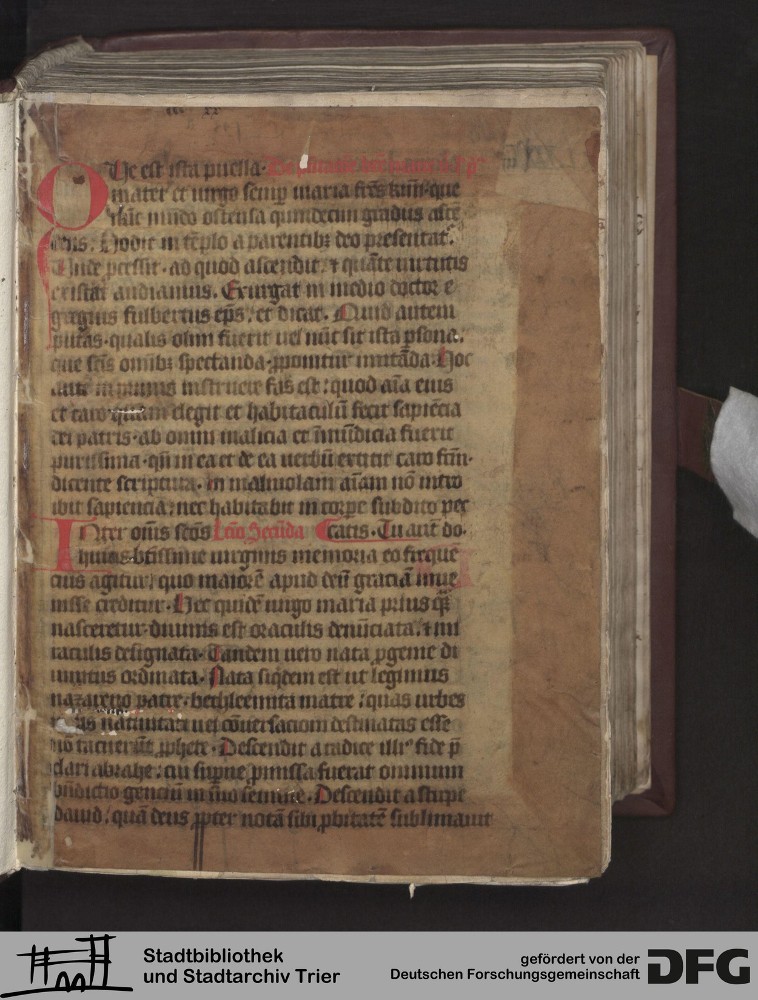 ec est ista puella.
O mater et uirgo semꝑ maria frēs kmi que
hāc mūdo ostensa quindecim gradus ascē
dens. Hodie in tēplo a parentibꝫ deo presentat᷑.
Vnde ꝓcessit. ad quod ascendit. ⁊ quāte uirtutis
existat audiamus. Exurgat in medio doctoꝝ e
gregius fulbertus ep̄s. et dicat. Quid autem
putas. qualis olim fuerit uel nūc sit ista ꝑsona.
que sc̄is omībꝫ spectanda. ꝓponitur imitāda. Hoc
aute in primis instruere fas est. quod aīa eius
et caro quam elegit et habitaculū fecit sapiēcia
dei patris. ab omni malicia et īmūdicia fuerit
purissima. qn̄ in ea et de ea uerbū extitit caro
dicente scriptura. In maliuolam aīam nō intro
ibit sapiencia. nec habitabit in corꝑe subdito pec
Inter om̄s sc̄os Lc̄o Secūda catis. Tu aūt do.
huius btīssime uirginis memoria eo freque
cius agitur. quo maiorē apud deū graciā inue
nisse creditur. Hec quidē uirgo maria prius
nasceretur. diuinis est oraculis denūciata. ⁊ mi
raculis designata. Tandem uero nata ꝓgenie di
uinitus ordinata. Nata siqidem est ut legimus
nazareno patre. bethleemita matre. quas urbes
natiuitati uel cōuersacioni destinatas esse
nō tacuerūt ꝓphete. Descendit a radice
clari abrahe. cui superne ꝓmissa fuerat omnium
bn̄dictio genciū in suo semine. Descendit a stirpe
dauid. quā deus ꝓpter notā sibi ꝓbitatē sublimauit
Stadtbibliothek
und Stadtarchiv Trier
gefördert von der
Deutschen Forschungsgemeinschaft
DFG